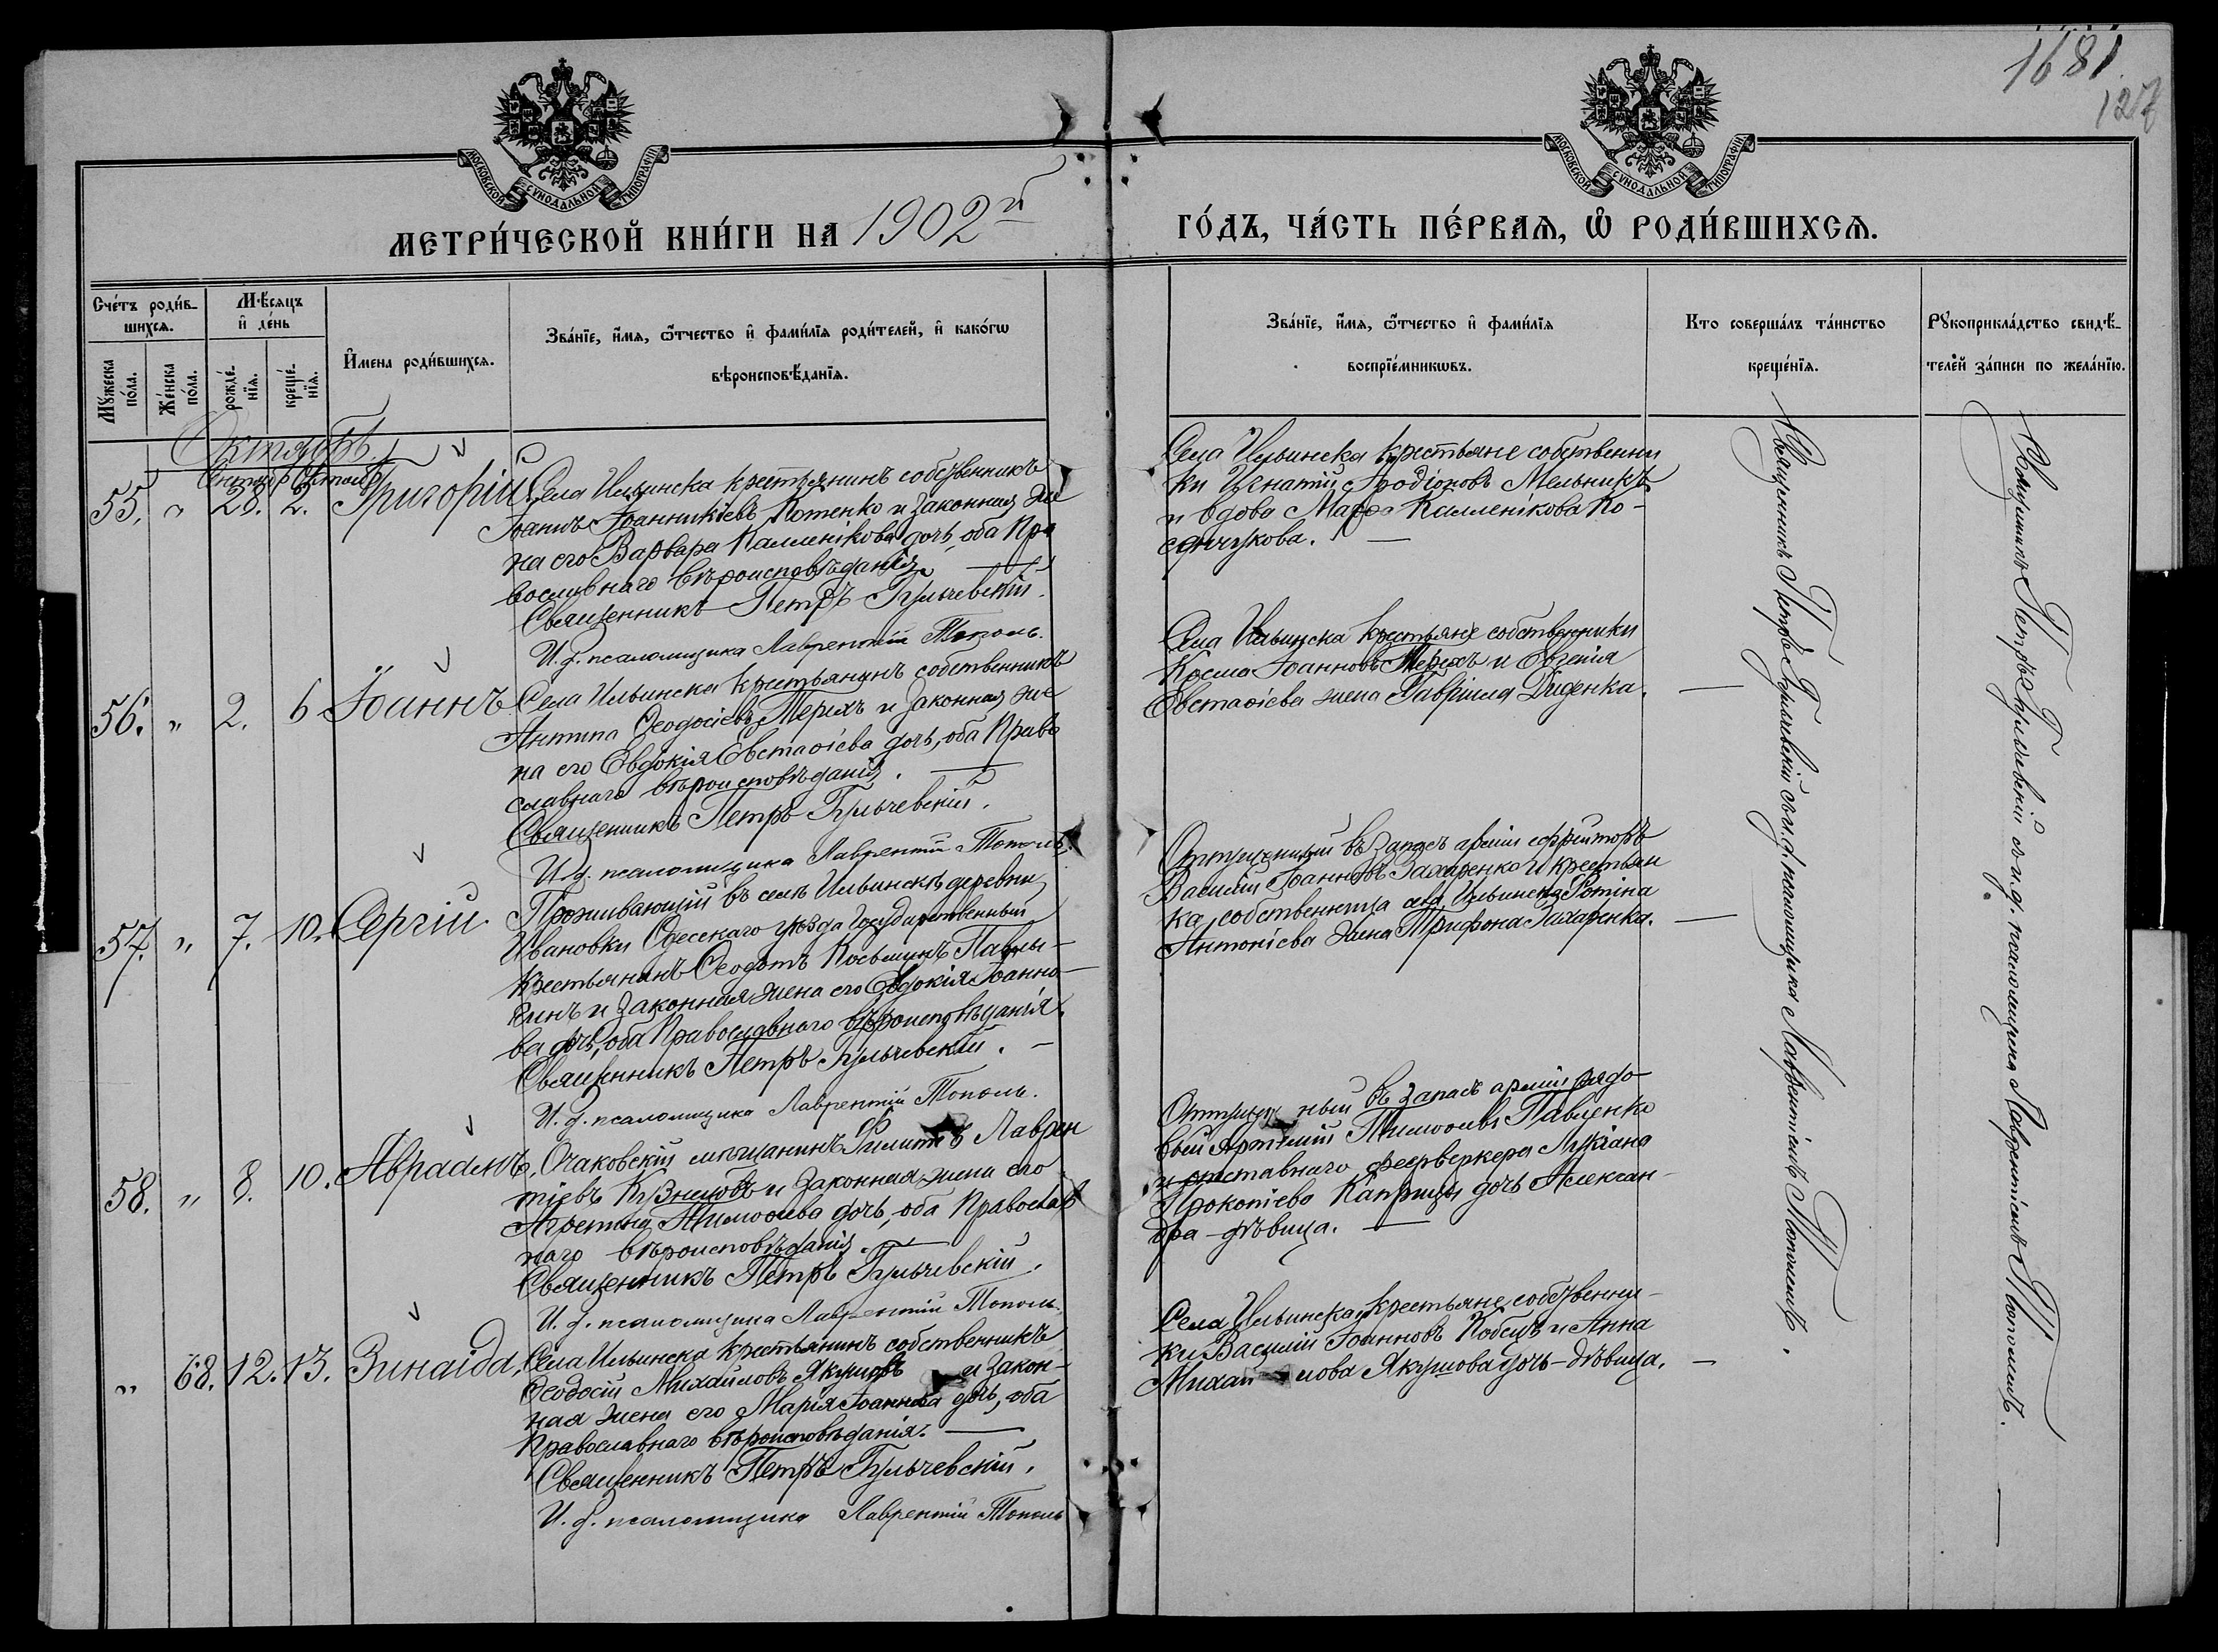 1681
127
МОСКОВСКОЙ СѴНОДАЛЬНОЙ ТИПОГРАФІИ
МОСКОВСКОЙ СѴНОДАЛЬНОЙ ТИПОГРАФІИ
МЕТРИ́ЧЕСКОЙ КНИ́ГИ НА 1902й
ГО́ДЪ, ЧА́СТЬ ПЕ́РВАѦ, Ѡ РОДИ́ВШИХСѦ.
Сче́тъ роди́в-
шихсѧ.
Мꙋжеска по́ла.
Же́нска по́ла.
Мѣ́сѧцъ
и де́нь
рожде́-
нїѧ.
креще́-
нїѧ.
И҆мена роди́вшихсѧ.
Зва́нїе, и҆́мѧ, ѻ҆́тчество и҆ фами́лїѧ роди́телей, и҆ како́гѡ
вѣроисповѣ́данїѧ.
Зва́нїе, и҆́мѧ, ѻ҆́тчество и҆ фами́лїѧ
воспрїе́мникѡвъ.
Кто соверша́лъ та́инство
креще́нїѧ.
Рꙋкоприкла́дство свидѣ́-
телей за́писи по жела́нїю.
Октябрь.
Сентяб Октябр
55. " 28. 2. Григорій
Села Ильинска крестьянинъ собственникъ
Іоаннъ Іоанникіевъ Котенко и законная же
на его Варвара Каллиникова дочь, оба Пра
вославнаго вѣроисповѣданія.
Священникъ Петръ Гульчевскій.
И. д. псаломщика Лаврентій Тополь.
Села Ильинска крестьяне собственни
ки Игнатій Иродіоновъ Мельникъ
и вдова Марѳа Каллиникова Ко-
санчукова.
56. " 2. 6 Іоаннъ
Села Ильинска крестьянинъ собственникъ
Антипа Ѳеодосіевъ Терехъ и законная же
на его Евдокія Евстаѳіева дочь, оба Право
славнаго вѣроисповѣданія.
Священникъ Петръ Гульчевскій.
И. д. псаломщика Лаврентій Тополь.
Села Ильинска крестьяне собственники
Косма Іоанновъ Терехъ и Евгенія
Евстаѳіева жена Гавріила Диденка.
57. " 7. 10. Сергій
Проживающій въ селѣ Ильинскѣ деревни
Ивановки Одесскаго уѣзда государственный
крестьянинъ Ѳеодотъ Косьминъ Павлы-
гинъ и законная жена его Евдокія Іоанно-
ва дочь, оба Православнаго вѣроисповѣданія.
Священникъ Петръ Гульчевскій.
И. д. псаломщика Лаврентій Тополь.
Отпущенный въ запасъ арміи ефрейторъ
Василій Іоанновъ Захаренко и крестьян
ка собственница села Ильинска Фотина
Антоніева жена Трифона Захаренка.
58. " 8. 10. Авраамъ
Очаковскій мѣщанинъ Филиппъ Лаврен
тіевъ Кузнецовъ и законная жена его
Агрепина Тимоѳеева дочь, оба Православ
наго вѣроисповѣданія.
Священникъ Петръ Гульчевскій.
И. д. псаломщика Лаврентій Тополь.
Отпущенный въ запасъ арміи рядо-
вый Артемій Тимоѳеевъ Павленко
и отставнаго фейерверкера Лукіана
Прокопіева Каприцы дочь Алексан-
дра - дѣвица.
" 68. 12. 13. Зинаіда
Села Ильинска крестьянинъ собственникъ
Ѳеодосій Михайловъ Якушовъ и закон-
ная жена его Марія Іоаннова дочь, оба
Православнаго вѣроисповѣданія.
Священникъ Петръ Гульчевскій.
И. д. псаломщика Лаврентій Тополь
Села Ильинска крестьяне собственни-
ки Василій Іоанновъ Кобецъ и Анна
Михайлова Якушова дочь - дѣвица.
Священникъ Петръ Гульчевскій съ и. д. псаломщика Лаврентіемъ Тополемъ.
Священникъ Петръ Гульчевскій съ и. д. псаломщика Лаврентіемъ Тополемъ.